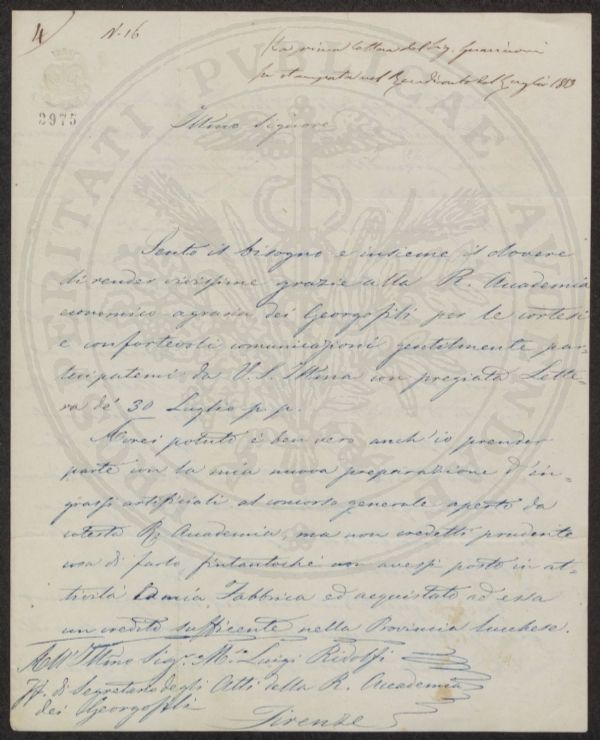 4) N. 16
La prima lettera del Sig. Guarinoni
fu stampata nel Rendiconto del Luglio
2975
Ill.mo Signore
Sento il bisogno e insieme il dovere
di render vivissime grazie alla R. Accademia
economico agraria dei Georgofili per le cortesi
e confortevoli comunicazioni gentilmente par=
tecipatemi da V. S. Ill.ma con pregiata Lette=
ra de' 30 Luglio p. p.
Avrei potuto è ben vero anch'io prender
parte con la mia nuova preparazione d'in=
grassi artificiali al concorso generale aperto da
cotesta R. Accademia, ma non credetti prudente
cosa di farlo fintantoché non avessi posto in at=
tività la mia Fabbrica ed acquistato ad essa
un credito sufficente nella Provincia Lucchese.
All'Ill.mo Sig. M.se Luigi Ridolfi
ff. di Segretario degli Atti della R. Accademia
dei Georgofili
Firenze
PROSPERITATI PUBLICAE AUGENDAE